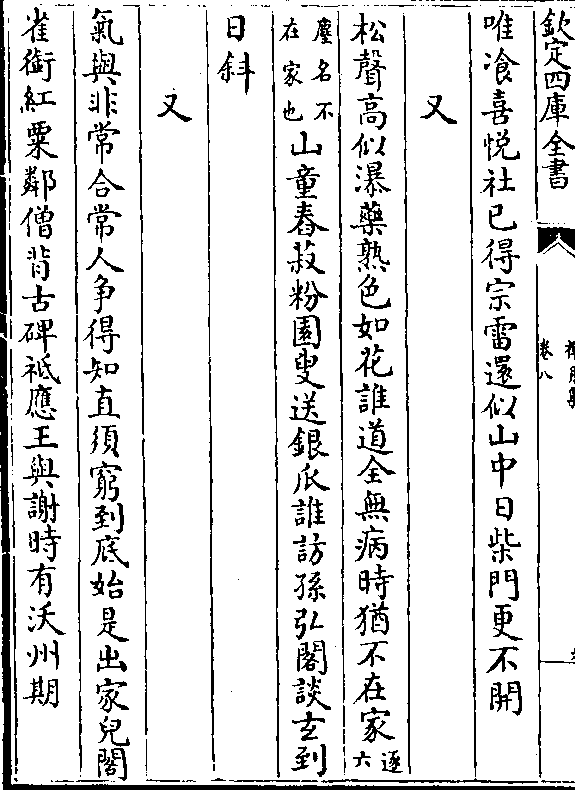 欽定四庫全書
卷八
唯飡喜悦社已得宗雷還似山中日柴門更不開
又
松聲高似瀑藥熟色如花誰道全無病時猶不在家逐六
塵名不在家也山童舂菽粉園叟送銀瓜誰訪孫弘閣談玄到
日斜
又
氣與非常合常人争得知直須窮到底始是出家兒閣
雀銜紅粟鄰僧背古碑祗應王與謝時有沃州期